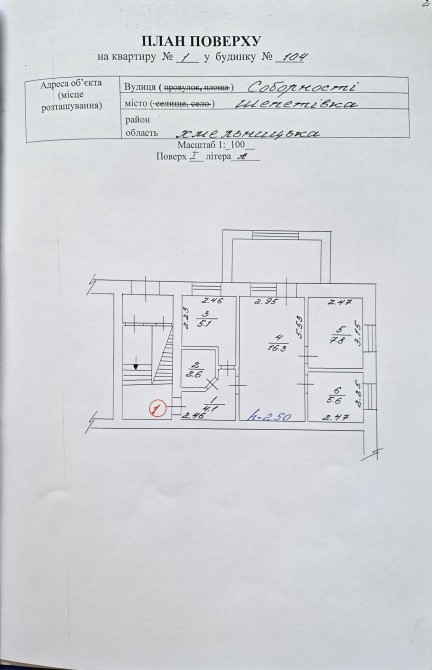 2
ПЛАН ПОВЕРХУ
на квартиру № 1 у будинку № 104
Адреса об'єкта (місце розташування)
Вулиця ( провулок, площа ) Соборності
місто ( селище, село ) Шепетівка
район
область Хмельницька
Масштаб 1:_100__
Поверх I літера А
2.46
2.95
2.47
2.23
3
5.1
5.53
4
16.3
5
7.8
3.15
2
2.6
6
5.6
2.25
1
1
4.1
2.46
h=2.50
2.47